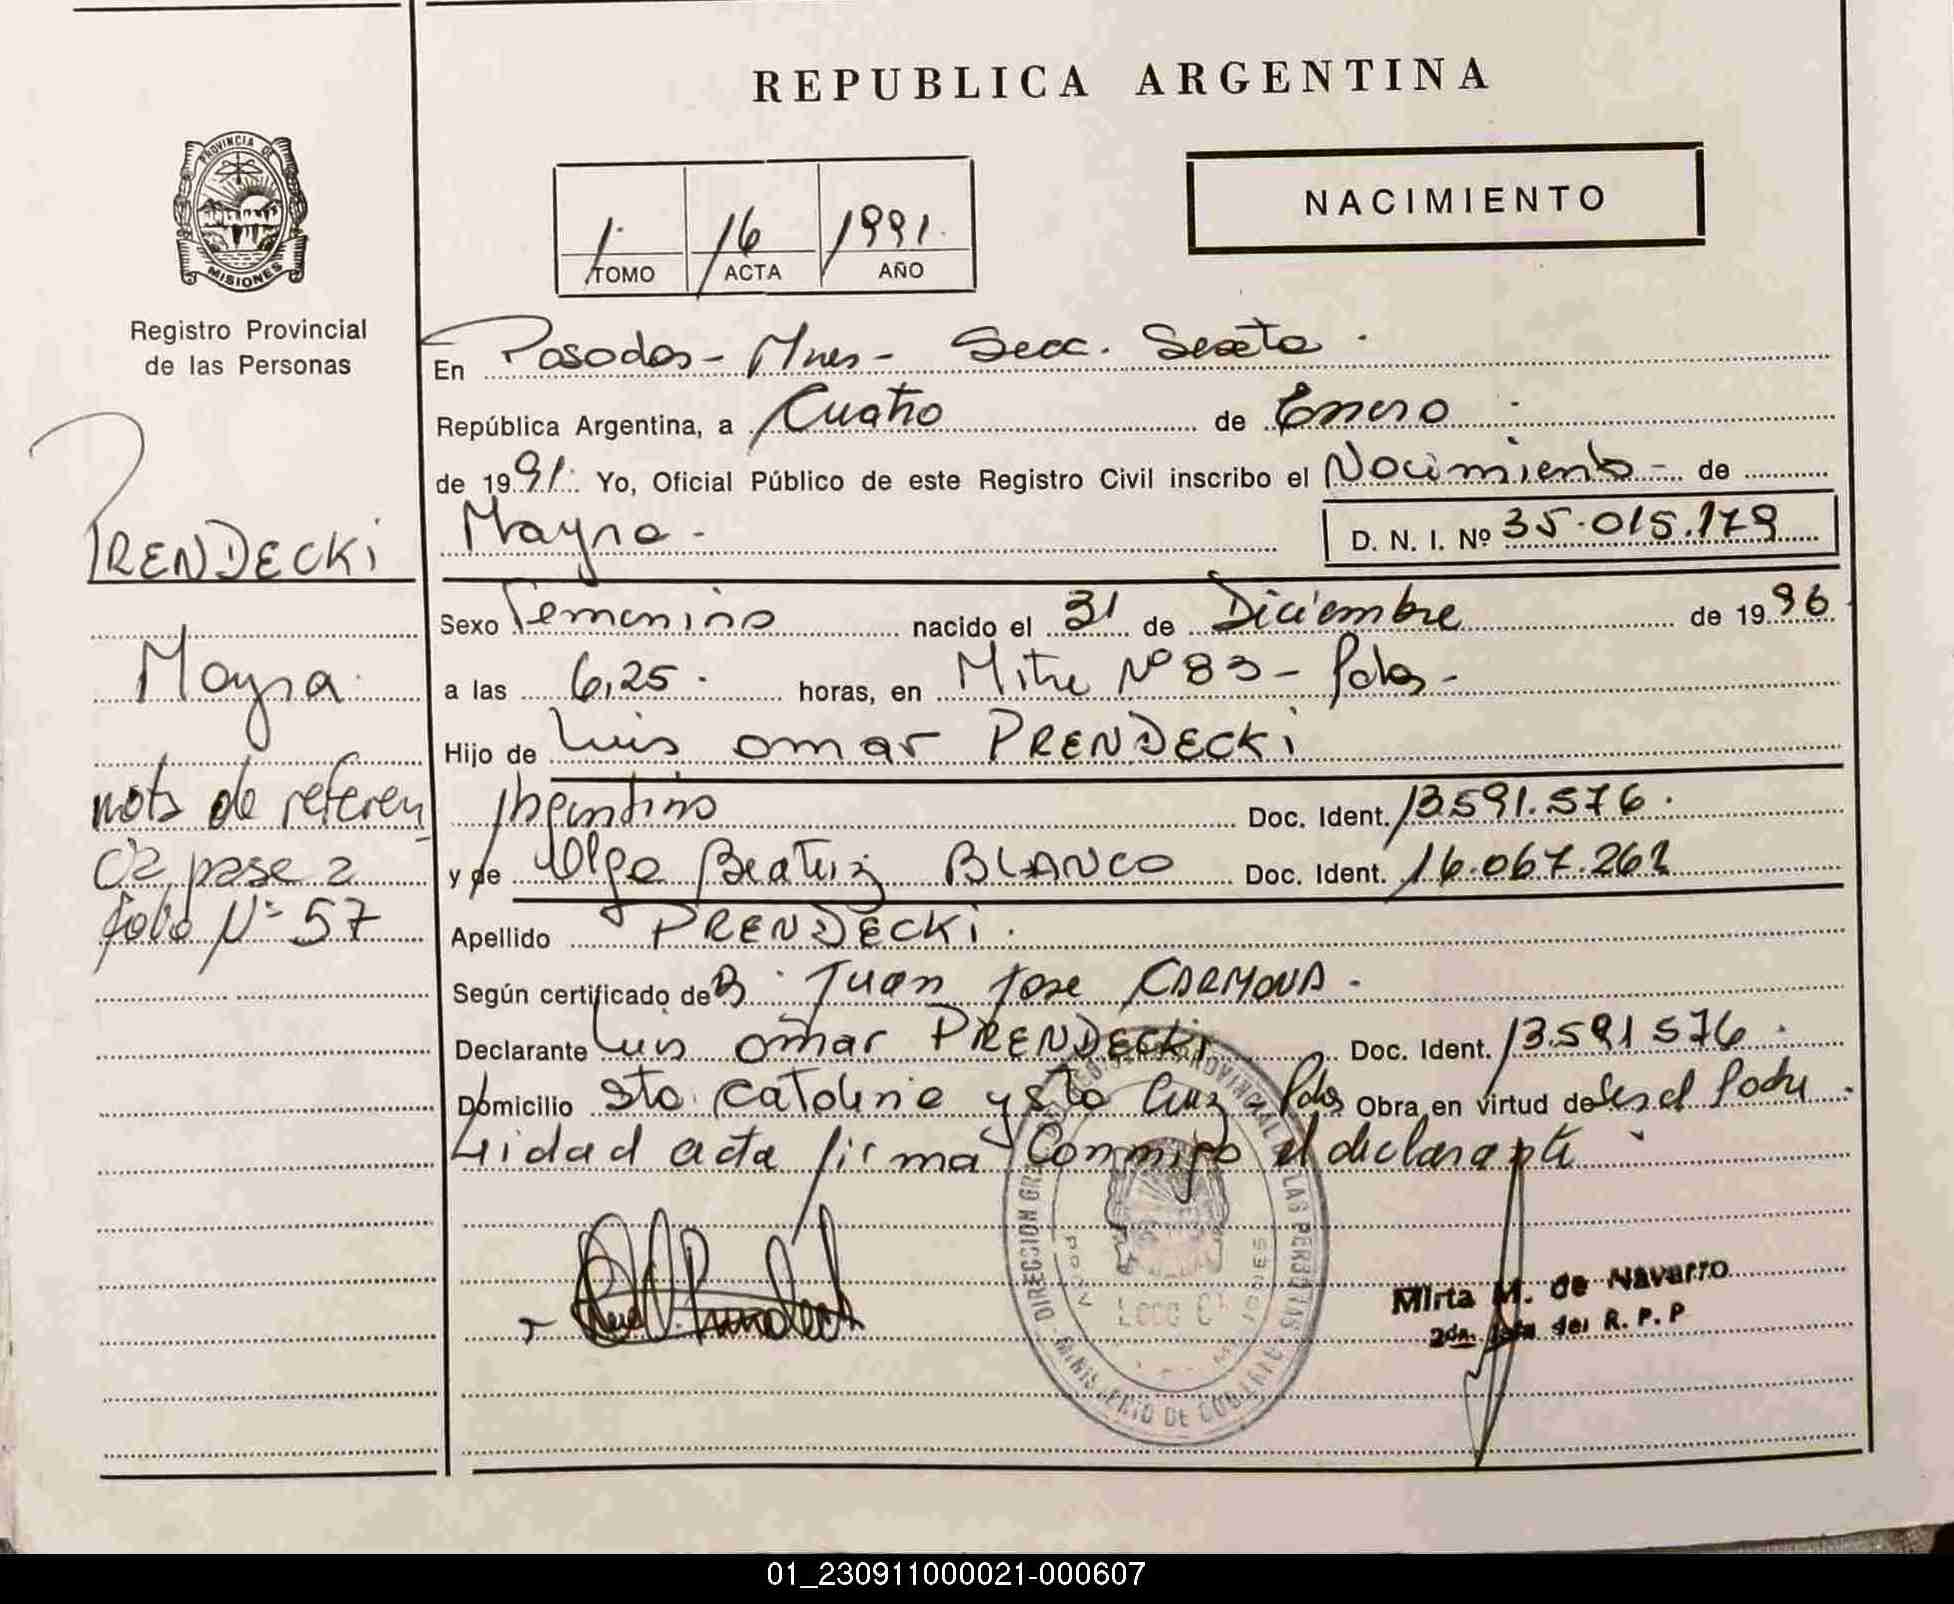 REPUBLICA ARGENTINA
PROVINCIA DE
MISIONES
Registro Provincial
de las Personas
1. 16 1991.
TOMO ACTA AÑO
NACIMIENTO
En Posadas - Mnes - Secc. Sexta.
República Argentina, a Cuatro de Enero.
de 1991. Yo, Oficial Público de este Registro Civil inscribo el Nacimiento - de
Mayra -
D. N. I. Nº 35.015.179
PRENDECKi
Mayra.
nota de referen
cia pase a
folio Nº 57
Sexo Femenino nacido el 31 de Diciembre de 1996
a las 6,25. horas, en Mitre Nº 83 - Pdas -
Hijo de Luis omar PRENDECKi
Argentino Doc. Ident. 13.591.576.
y de Olga Beatriz BLANCO Doc. Ident. 16.067.262
Apellido PRENDECKi.
Según certificado de Juan Jose CARMONA -
Declarante Luis omar PRENDECKi Doc. Ident. 13.591.576.
Domicilio Sta. Catalina y Sta Cruz - Pdas Obra en virtud de
acta firma Conmigo el declarante
DIRECCION GRAL REGISTRO PROVINCIAL DE LAS PERSONAS
MINISTERIO DE
Mirta M. de Navarro
2da. Jefa del R. P. P
01_230911000021-000607